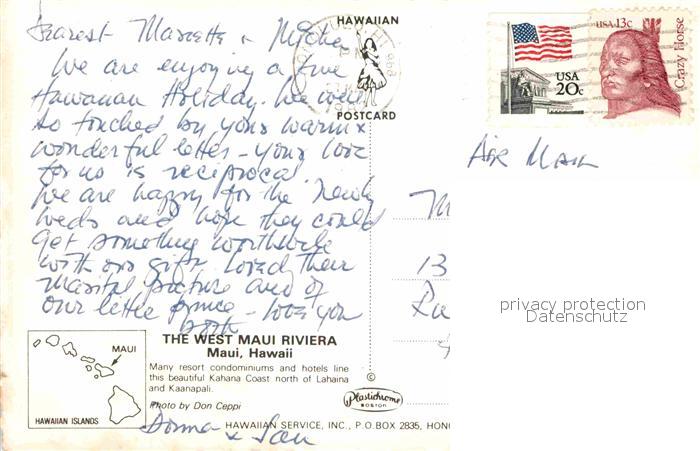 HAWAIIAN
POSTCARD
USA
20c
USA 13c
Crazy Horse
AIR MAIL
Dearest Marcette & Micha
We are enjoying a fine
Hawaiian Holiday. We were
so touched by your warm &
wonderful letter - your love
for us is reciprocal.
We are happy for the newly
weds and hope they could
get something worthwhile
with our gift. Loved their
marital picture and of
our little prince - love you
both
M
13
THE WEST MAUI RIVIERA
Maui, Hawaii
Many resort condominiums and hotels line
this beautiful Kahana Coast north of Lahaina
and Kaanapali.
Photo by Don Ceppi
MAUI
HAWAIIAN ISLANDS
©
Plastichrome
BOSTON
HAWAIIAN SERVICE, INC., P.O.BOX 2835, HONO
Donna
&
privacy protection
Datenschutz